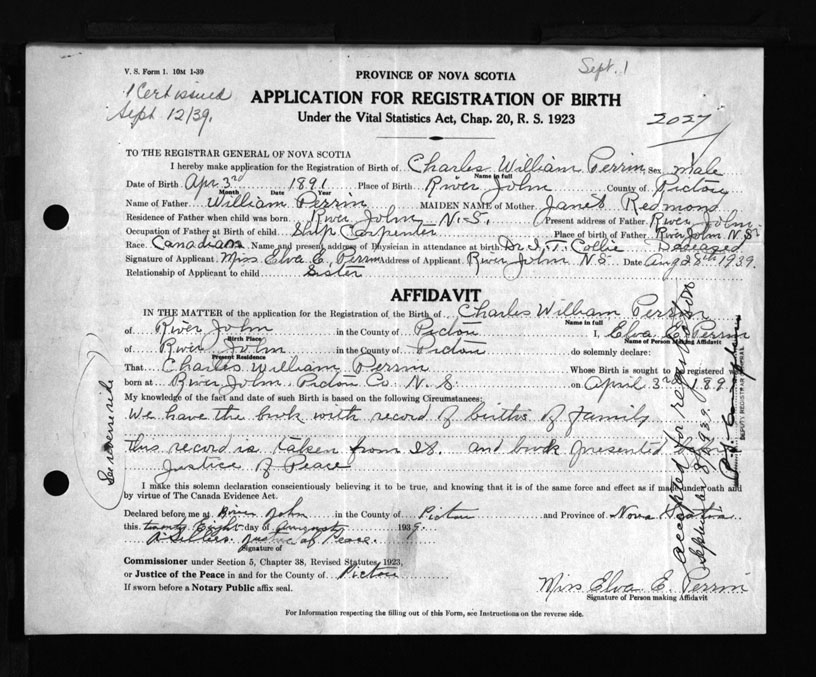 V. S. Form 1. 10M 1-39
PROVINCE OF NOVA SCOTIA
Sept. 1
1 Cert issued
Sept 12/39.
APPLICATION FOR REGISTRATION OF BIRTH
Under the Vital Statistics Act, Chap. 20, R. S. 1923
2027
TO THE REGISTRAR GENERAL OF NOVA SCOTIA
I hereby make application for the Registration of Birth of Charles William Perrin Sex male
Name in full
Date of Birth Apr 3rd 1891 Place of Birth River John County of Pictou
Month Date Year
Name of Father William Perrin MAIDEN NAME of Mother Janet Redmond
Residence of Father when child was born River John N.S. Present address of Father River John
Occupation of Father at Birth of child Ship Carpenter Place of birth of Father River John N.S.
Race Canadian Name and present address of Physician in attendance at birth Dr. Collie Deceased
Signature of Applicant Miss Elva E. Perrin Address of Applicant River John N.S. Date Aug 28th 1939.
Relationship of Applicant to child Sister
AFFIDAVIT
IN THE MATTER of the application for the Registration of the Birth of Charles William Perrin
Name in full
of River John in the County of Pictou I, Elva E. Perrin
Birth Place
Name of Person Making Affidavit
of River John in the County of Pictou do solemnly declare:
Present Residence
That Charles William Perrin Whose Birth is sought to be registered was
born at River John Pictou Co. N. S. on April 3rd 1891
My knowledge of the fact and date of such Birth is based on the following Circumstances:
We have the book with record of births of family
This record is taken from it. and book presented
Justice of Peace
I make this solemn declaration conscientiously believing it to be true, and knowing that it is of the same force and effect as if made under oath and
by virtue of The Canada Evidence Act.
Declared before me at River John in the County of Pictou and Province of Nova Scotia
this twenty Eight day of August 1939.
Sellers Justice of Peace.
Signature of
Commissioner under Section 5, Chapter 38, Revised Statutes, 1923,
or Justice of the Peace in and for the County of Pictou
If sworn before a Notary Public affix seal.
Miss Elva E. Perrin
Signature of Person making Affidavit
For Information respecting the filling out of this Form, see Instructions on the reverse side.
See reverse side
accepted for registration
September 8 1939
DEPUTY REGISTRAR GENERAL